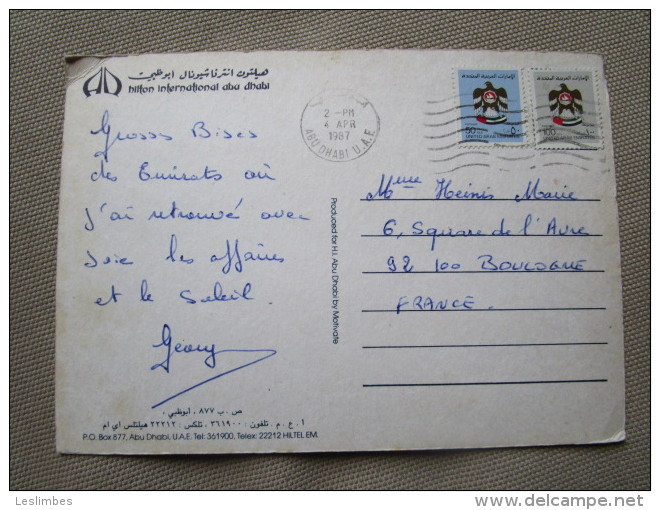 هيلتون انترناشيونال أبوظبي
hilton international abu dhabi
Grosses Bises
des Emirats où
j'ai retrouvé avec
joie les affaires
et le Soleil.
Géory
ص . ب ٨٧٧ ، أبوظبي ،
أ . ع . م . تلفون : ٣٦١٩٠٠ ، تلكس : ٢٢٢١٢ هيلتلس اي ام
P.O. Box 877, Abu Dhabi, U.A.E. Tel: 361900, Telex: 22212 HILTEL EM.
Produced for H.I. Abu Dhabi by Motivate
2 - PM
4 APR
1987
ABU DHABI U.A.E.
الإمارات العربية المتحدة
50
٥٠
UNITED ARAB EMIRATES
الإمارات العربية المتحدة
100
UNITED ARAB EMIRATES
Mme Heinis Marie
6, Square de l'Avre
92 100 BOULOGNE
FRANCE.
Leslimbes
delcampe.net